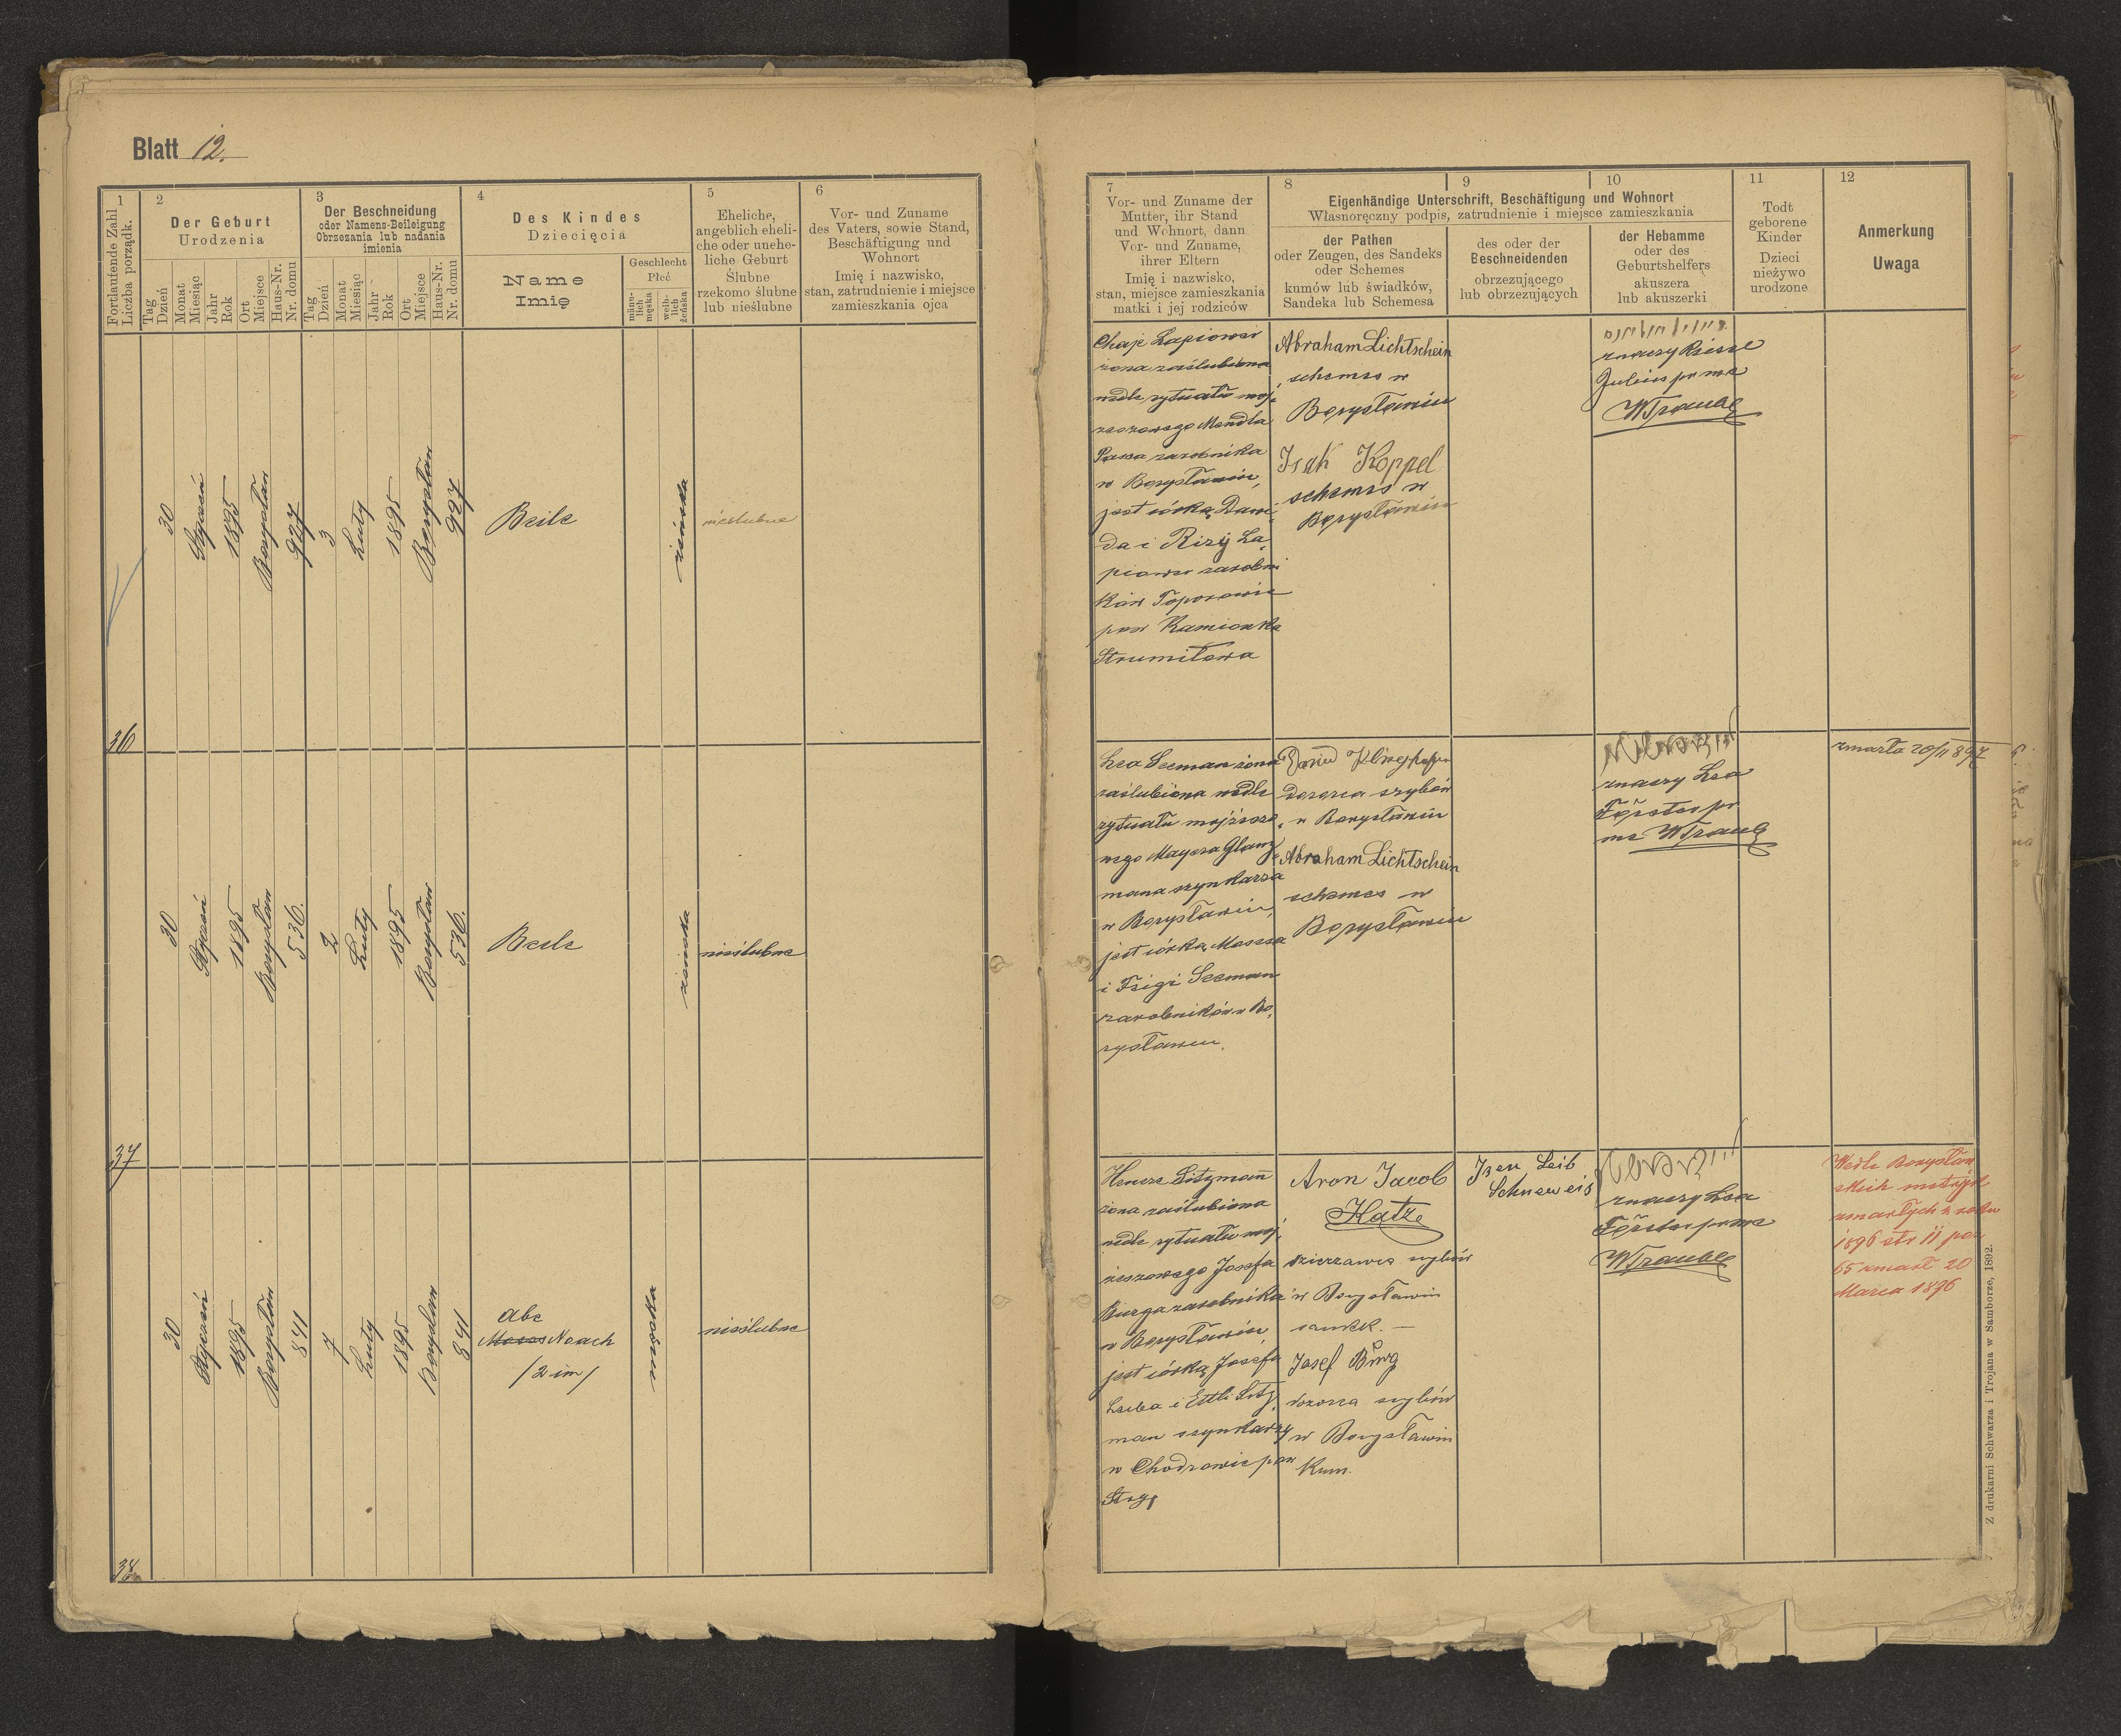 Blatt 12.
1
Fortlaufende Zahl
Liczba porządk.
2
Der Geburt
Urodzenia
Tag
Dzień
Monat
Miesiąc
Jahr
Rok
Ort
Miejsce
Haus-Nr.
Nr. domu
3
Der Beschneidung
oder Namens-Beileigung
Obrzezania lub nadania
imienia
Tag
Dzień
Monat
Miesiąc
Jahr
Rok
Ort
Miejsce
Haus-Nr.
Nr. domu
4
Des Kindes
Dziecięcia
Name
Imię
Geschlecht
Płeć
männ-
lich
męska
weib-
lich
żeńska
5
Eheliche,
angeblich eheli-
che oder unehe-
liche Geburt
Ślubne
rzekomo ślubne
lub nieślubne
6
Vor- und Zuname
des Vaters, sowie Stand,
Beschäftigung und
Wohnort
Imię i nazwisko,
stan, zatrudnienie i miejsce
zamieszkania ojca
7
Vor- und Zuname der
Mutter, ihr Stand
und Wohnort, dann
Vor- und Zuname,
ihrer Eltern
Imię i nazwisko,
stan, miejsce zamieszkania
matki i jej rodziców
8
9
10
Eigenhändige Unterschrift, Beschäftigung und Wohnort
Własnoręczny podpis, zatrudnienie i miejsce zamieszkania
der Pathen
oder Zeugen, des Sandeks
oder Schemes
kumów lub świadków,
Sandeka lub Schemesa
des oder der
Beschneidenden
obrzezującego
lub obrzezujących
der Hebamme
oder des
Geburtshelfers
akuszera
lub akuszerki
11
Todt
geborene
Kinder
Dzieci
nieżywo
urodzone
12
Anmerkung
Uwaga
36
30
Styczeń
1895
Borysław
927
3
Luty
1895
Borysław
927
Beile
żeńska
nieślubne
Chaje Łapiower
żona zaślubiona
wedle rytuału moj
żeszowego Mendla
Pawa zarobnika
w Borysławiu,
jest córką Dawi
da i Rizy Ła
piower zarobni
ków Toporowie
pow Kamionka
Strumiłowa
Abraham Lichtschein
schemes w
Borysławiu
Isak Koppel
schemes w
Borysławiu
znaczy Riesel
Julius pr me
WTraube
37
30
Styczeń
1895
Borysław
536.
2
Luty
1895
Borysław
536.
Beile
żeńska
nieślubne
Lea Seeman żona
zaślubiona wedle
rytuału mojżeszo
wego Mayera Glanz
mana szynkarza
w Borysławiu,
jest córką Mosesa
i Feigi Seeman
zarobników w Bo
rysławiu.
dozorca szybów
w Borysławiu
Abraham Lichtschein
schemes w
Borysławiu
znaczy Lea
Förster pr
me WTraube
zmarła 20/II 897
38
30
Styczeń
1895
Borysław
841
7
Luty
1895
Borysław
841
Abe
Moses Noach
/2 im/
męska
nieślubne
Hencze Litzmann
żona zaślubiona
wedle rytuału moj
żeszowego Josefa
Burga zarobnika
w Borysławiu,
jest córką Josefa
Leiba i Ettli Litz
man szynkarzy
w Chodowic pow
Stryj
Aron Jacob
Katze
dzierzawca szybów
w Borysławiu
sandek. —
Josef Burg
dozorca szybów
w Borysławiu
Kum.
Izen Leib
Schneweis
znaczy Lea
Förster pr me
WTraube
Wedle Borysław
skich metryk
zmarłych z roku
1896 str 11 poz
65 zmarł 20
Marca 1896
Z drukarni Schwarza i Trojana w Samborze, 1892.